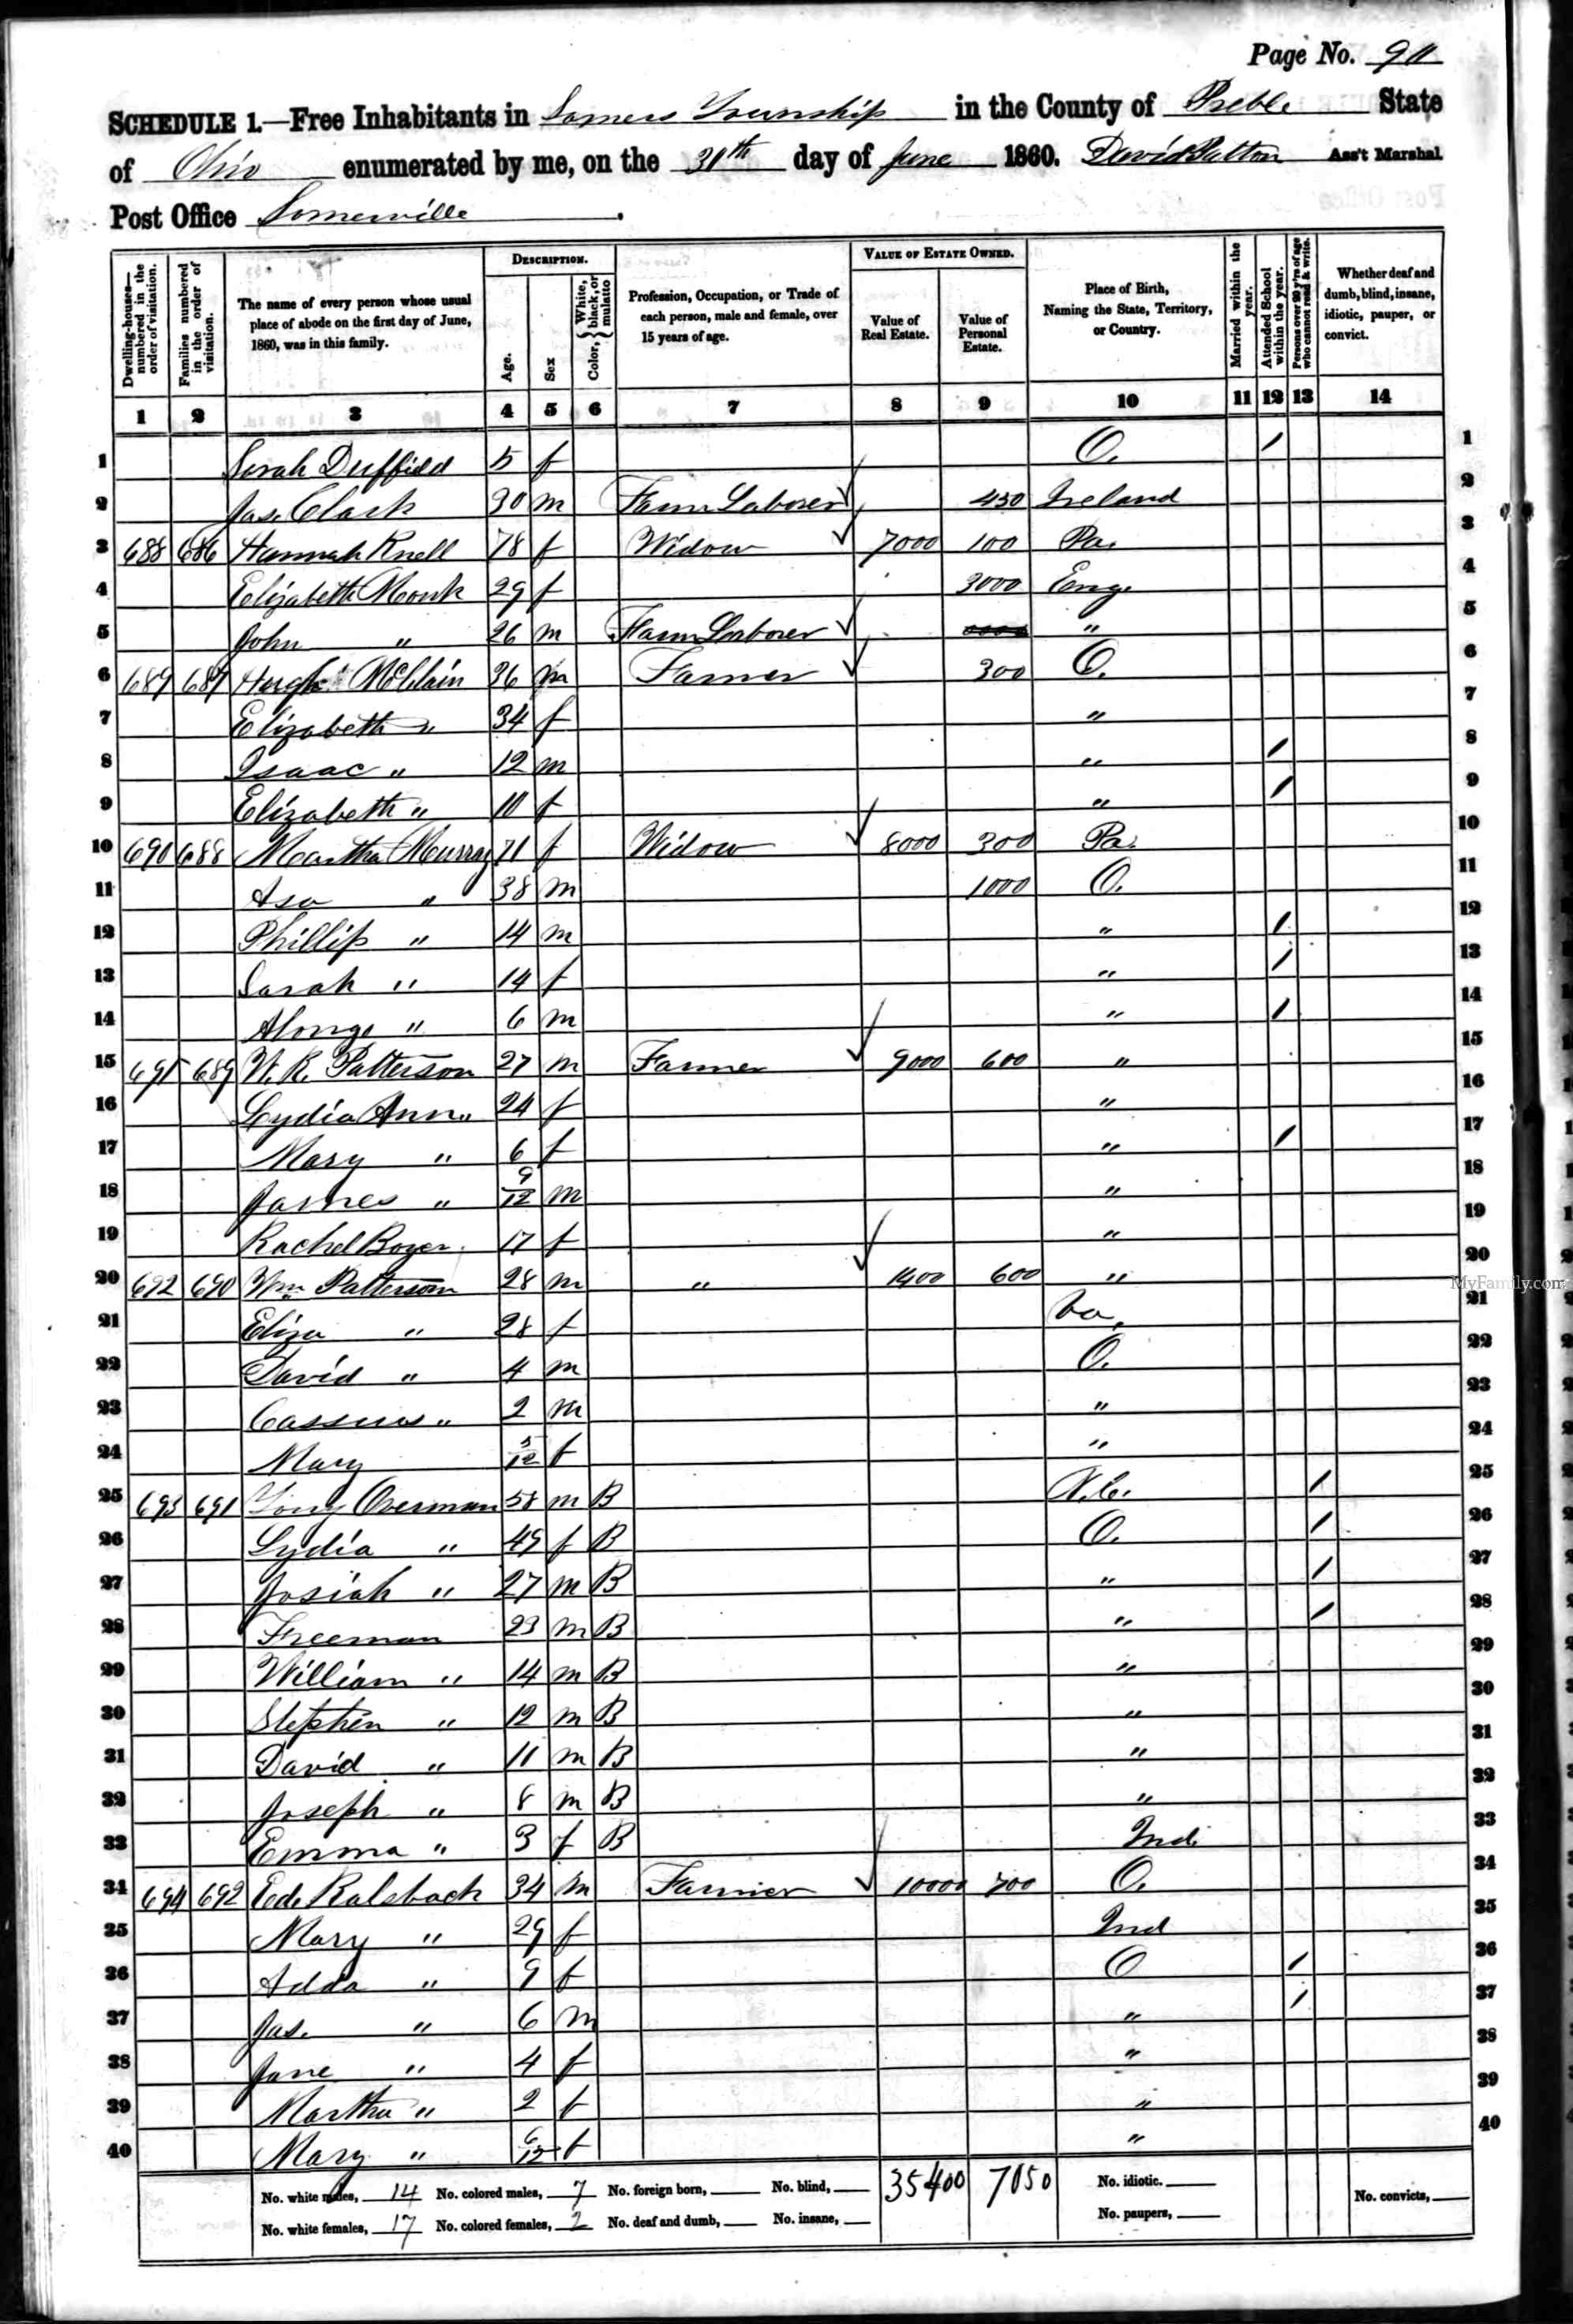 Page No. 90
SCHEDULE 1.—Free Inhabitants in Somers Township in the County of Preble State
of Ohio enumerated by me, on the 30th day of June 1860. David Patton Ass't Marshal.
Post Office Somerville.
Dwelling-houses—numbered in the order of visitation.
Families numbered in the order of visitation.
The name of every person whose usual place of abode on the first day of June, 1860, was in this family.
DESCRIPTION.
Age.
Sex
Color, { White, black, or mulatto
Profession, Occupation, or Trade of each person, male and female, over 15 years of age.
VALUE OF ESTATE OWNED.
Value of Real Estate.
Value of Personal Estate.
Place of Birth, Naming the State, Territory, or Country.
Married within the year.
Attended School within the year.
Persons over 20 y'rs of age who cannot read & write.
Whether deaf and dumb, blind, insane, idiotic, pauper, or convict.
1 2 3 4 5 6 7 8 9 10 11 12 13 14
1 Sarah Duffield 5 f O. / 1
2 Jas. Clark 30 m Farm Laborer 450 Ireland 2
3 688 686 Hannah Knell 78 f Widow 7000 100 Pa. 3
4 Elizabeth Monk 29 f 3000 Eng. 4
5 John " 26 m Farm Laborer " 5
6 689 687 Hugh McClain 36 m Farmer 300 O. 6
7 Elizabeth " 34 f " 7
8 Isaac " 12 m " / 8
9 Elizabeth " 10 f " / 9
10 690 688 Martha Murray 71 f Widow 8000 300 Pa. 10
11 Asa " 38 m 1000 O. 11
12 Phillip " 14 m " / 12
13 Sarah " 14 f " / 13
14 Alonzo " 6 m " / 14
15 691 689 W. R. Patterson 27 m Farmer 9000 600 " 15
16 Lydia Ann " 24 f " 16
17 Mary " 6 f " / 17
18 James " 9/12 m " 18
19 Rachel Boyer 17 f " 19
20 692 690 Wm Patterson 28 m " 1400 600 " 20
21 Eliza " 28 f Va. 21
22 David " 4 m O. 22
23 Cassius " 2 m " 23
24 Mary 5/12 f " 24
25 693 691 Overman 58 m B N.C. / 25
26 Lydia " 49 f B O. / 26
27 Josiah " 27 m B " / 27
28 Freeman 23 m B " / 28
29 William " 14 m B " 29
30 Stephen " 12 m B " 30
31 David " 11 m B " 31
32 Joseph " 8 m B " 32
33 Emma " 3 f B Ind. 33
34 694 692 Ed. Ralsback 34 m Farmer 10000 700 O. 34
35 Mary " 29 f Ind 35
36 Adda " 9 f O / 36
37 Jas. " 6 m " / 37
38 Jane " 4 f " 38
39 Martha " 2 f " 39
40 Mary " 6/12 f " 40
No. white males, 14 No. colored males, 7 No. foreign born, No. blind, 35400 7050 No. idiotic. No. convicts,
No. white females, 17 No. colored females, 2 No. deaf and dumb, No. insane, No. paupers,
MyFamily.com